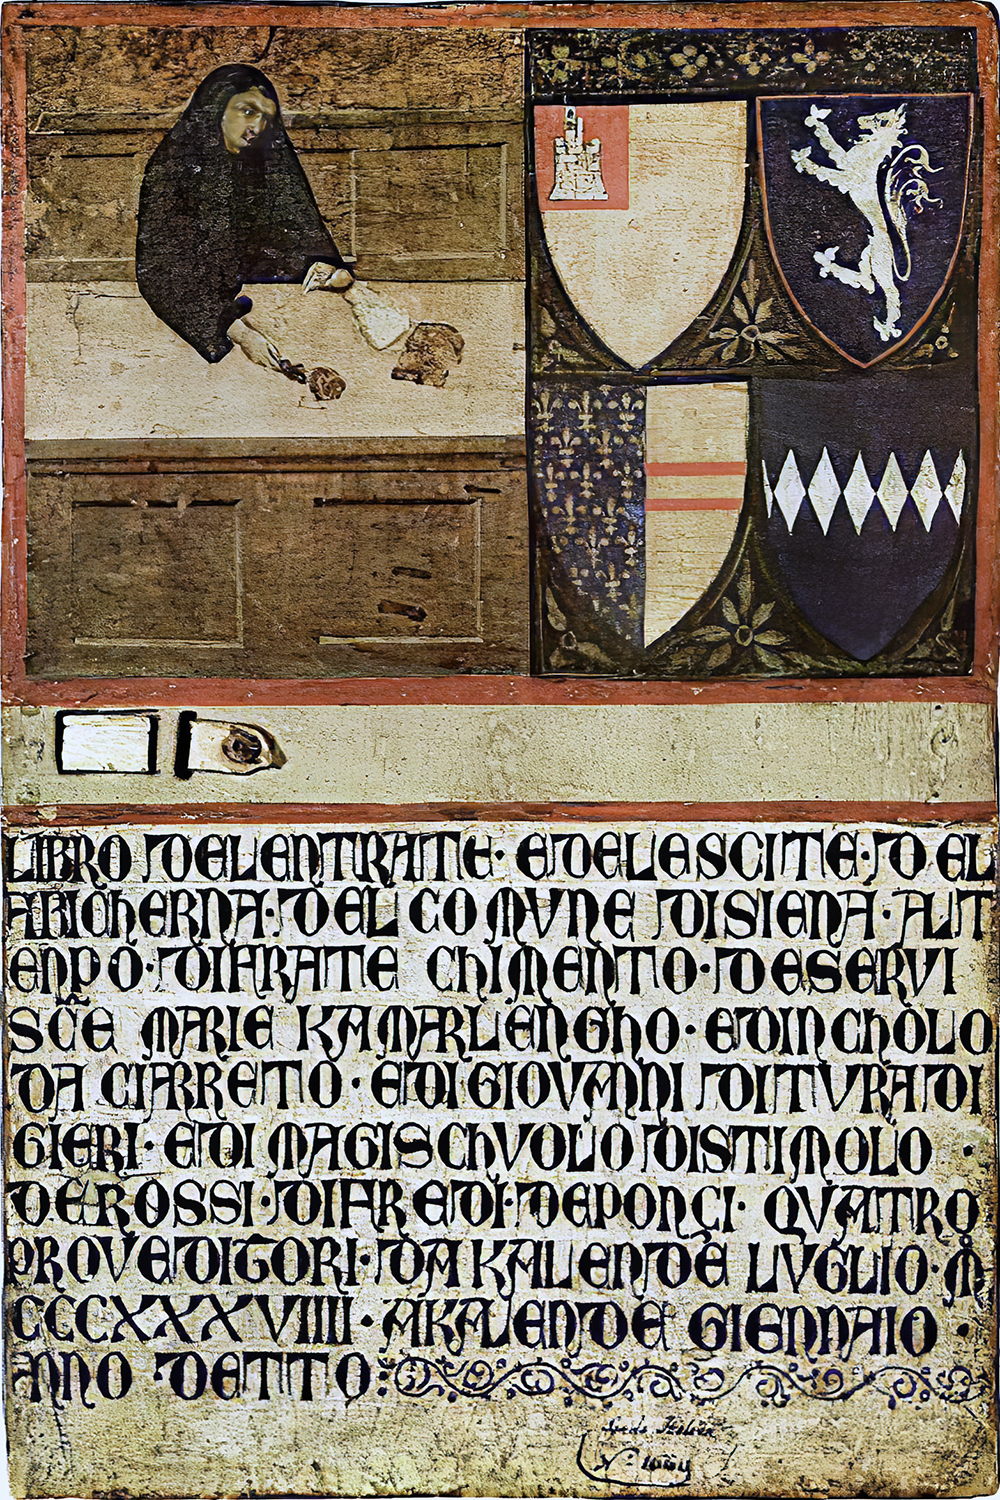 LIBRO DELENTRATE · EDELESCITE · DEL
ABICHERNA · DEL COMVNE DISIENA · ALT
ENPO · DIFRATE CHIMENTO · DESERVI
SCE MARIE KAMARLENGHO · EDINCHOLO
DA CIARRETO · EDI GIOVANNI DITVRA DI
GIERI · EDI MAGISCHVOLO DISTIMOLO ·
DEROSSI · DIFREDI · DEPONCI · QVATRO
PROVEDITORI · DA KALENDE LVGLIO · M
CCCXXXVIIII · AKALENDE GIENNAIO ·
ANNO DETTO :